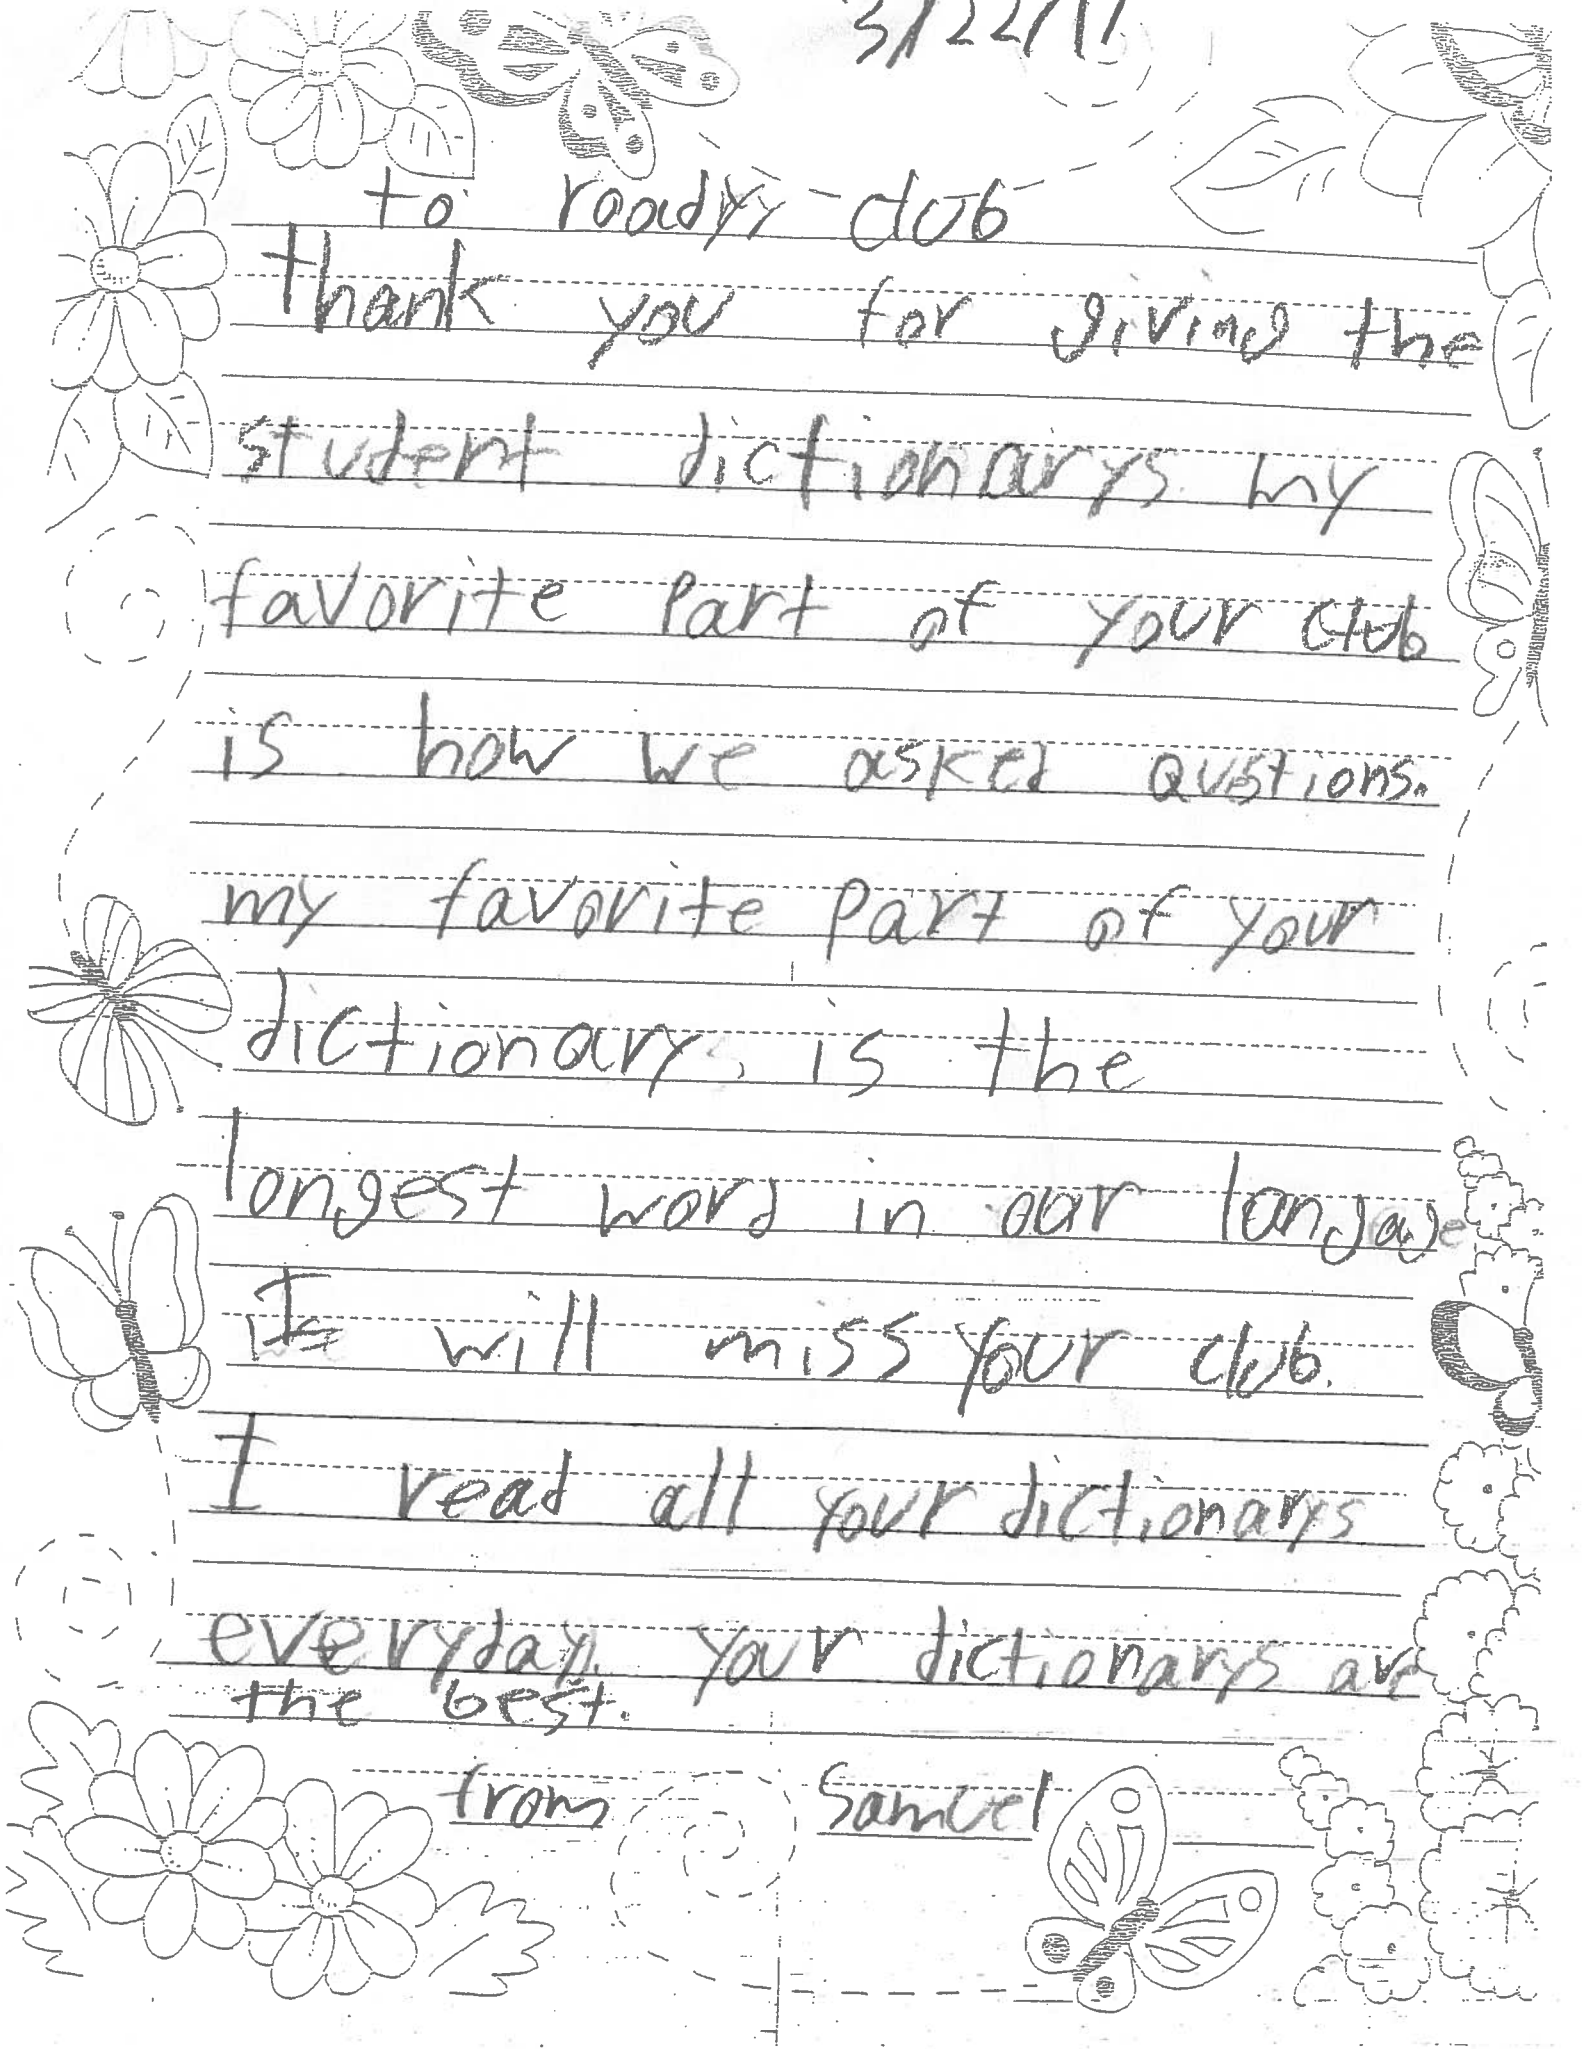 3/22/17
to roadyy-club
thank you for giving the
student dictionarys my
favorite part of your club
is how we asked qustions.
my favorite part of your
dictionary. is the
longest word in our langage
I will miss your club.
I read all your dictionarys
everyday. your dictionarys are
the best.
from Samuel